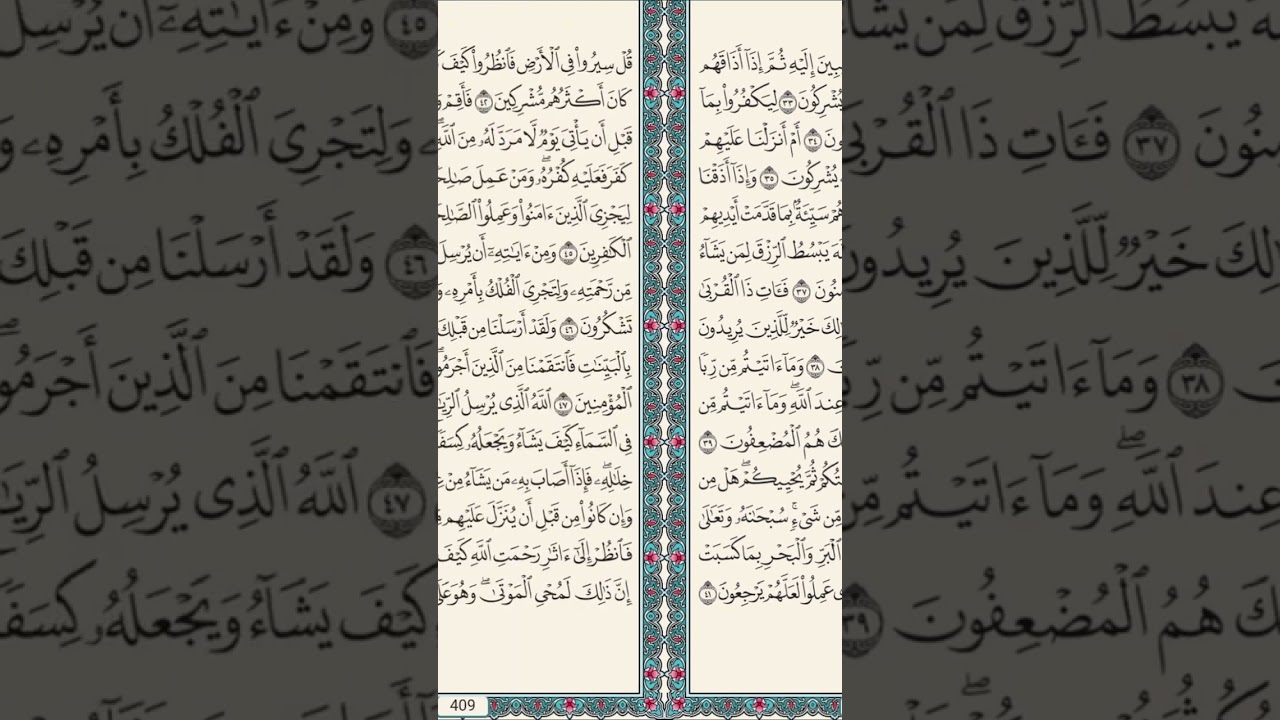 بِينَ إِلَيْهِ ثُمَّ إِذَآ أَذَاقَهُم
يُشْرِكُونَ ٣٣ لِيَكْفُرُوا۟ بِمَآ
ونَ ٣٤ أَمْ أَنزَلْنَا عَلَيْهِمْ
يُشْرِكُونَ ٣٥ وَإِذَآ أَذَقْنَا
هُمْ سَيِّئَةٌۢ بِمَا قَدَّمَتْ أَيْدِيهِمْ
لَّهَ يَبْسُطُ ٱلرِّزْقَ لِمَن يَشَآءُ
مِنُونَ ٣٧ فَـَٔاتِ ذَا ٱلْقُرْبَىٰ
لِكَ خَيْرٌ لِّلَّذِينَ يُرِيدُونَ
٣٨ وَمَآ ءَاتَيْتُم مِّن رِّبًا
عِندَ ٱللَّهِ ۖ وَمَآ ءَاتَيْتُم مِّن
كَ هُمُ ٱلْمُضْعِفُونَ ٣٩
تُكُمْ ثُمَّ يُحْيِيكُمْ ۖ هَلْ مِن
مِّن شَىْءٍ ۚ سُبْحَـٰنَهُۥ وَتَعَـٰلَىٰ
ٱلْبَرِّ وَٱلْبَحْرِ بِمَا كَسَبَتْ
ى عَمِلُوا۟ لَعَلَّهُمْ يَرْجِعُونَ ٤١
قُلْ سِيرُوا۟ فِى ٱلْأَرْضِ فَٱنظُرُوا۟ كَيْفَ
كَانَ أَكْثَرُهُم مُّشْرِكِينَ ٤٢ فَأَقِمْ
قَبْلِ أَن يَأْتِىَ يَوْمٌ لَّا مَرَدَّ لَهُۥ مِنَ ٱللَّهِ
كَفَرَ فَعَلَيْهِ كُفْرُهُۥ ۖ وَمَنْ عَمِلَ صَـٰلِحًا
لِيَجْزِىَ ٱلَّذِينَ ءَامَنُوا۟ وَعَمِلُوا۟ ٱلصَّـٰلِحَـ
ٱلْكَـٰفِرِينَ ٤٥ وَمِنْ ءَايَـٰتِهِۦٓ أَن يُرْسِلَ
مِّن رَّحْمَتِهِۦ وَلِتَجْرِىَ ٱلْفُلْكُ بِأَمْرِهِۦ وَ
تَشْكُرُونَ ٤٦ وَلَقَدْ أَرْسَلْنَا مِن قَبْلِكَ
بِٱلْبَيِّنَـٰتِ فَٱنتَقَمْنَا مِنَ ٱلَّذِينَ أَجْرَمُوا۟
ٱلْمُؤْمِنِينَ ٤٧ ٱللَّهُ ٱلَّذِى يُرْسِلُ ٱلرِّيَـٰ
فِى ٱلسَّمَآءِ كَيْفَ يَشَآءُ وَيَجْعَلُهُۥ كِسَفًا
خِلَـٰلِهِۦ ۖ فَإِذَآ أَصَابَ بِهِۦ مَن يَشَآءُ مِنْ عِ
وَإِن كَانُوا۟ مِن قَبْلِ أَن يُنَزَّلَ عَلَيْهِم
فَٱنظُرْ إِلَىٰٓ ءَاثَـٰرِ رَحْمَتِ ٱللَّهِ كَيْفَ
إِنَّ ذَٰلِكَ لَمُحْىِ ٱلْمَوْتَىٰ ۖ وَهُوَ عَلَىٰ
409